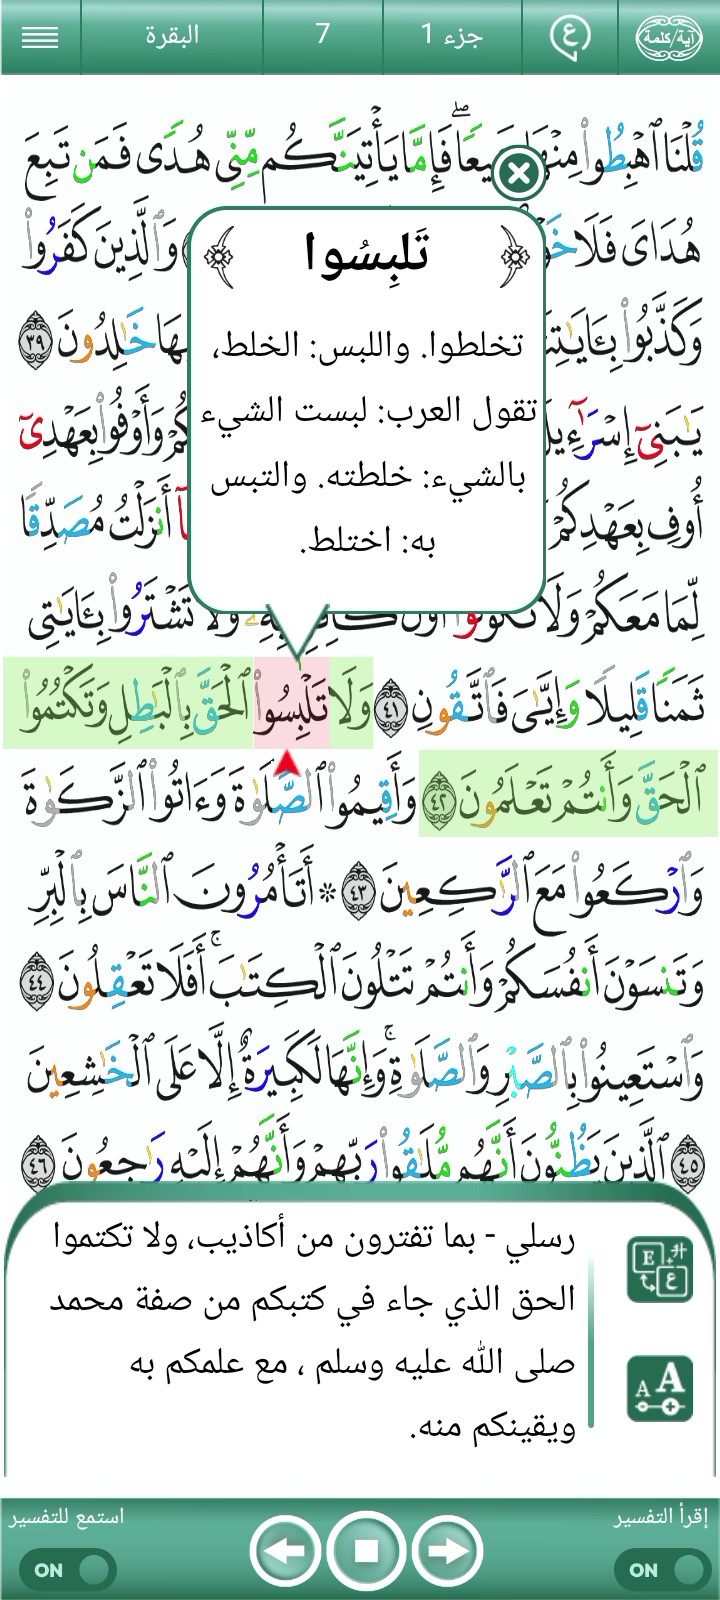 آية/كلمة
ع
جزء 1
7
البقرة
قُلْنَا ٱهْبِطُوا۟ مِنْهَا جَمِيعًاۖ فَإِمَّا يَأْتِيَنَّكُم مِّنِّى هُدًى فَمَن تَبِعَ
هُدَاىَ فَلَا وَٱلَّذِينَ كَفَرُوا۟
وَكَذَّبُوا۟ خَـٰلِدُونَ ٣٩
يَـٰبَنِىٓ وَأَوْفُوا۟ بِعَهْدِىٓ
أُوفِ بِعَهْدِكُمْ أَنزَلْتُ مُصَدِّقًا
لِّمَا مَعَكُمْ وَلَا تَكُونُوٓا۟ أَوَّلَ كَافِرٍۭ بِهِۦ وَلَا تَشْتَرُوا۟ بِـَٔايَـٰتِى
ثَمَنًا قَلِيلًا وَإِيَّـٰىَ فَٱتَّقُونِ ٤١ وَلَا تَلْبِسُوا۟ ٱلْحَقَّ بِٱلْبَـٰطِلِ وَتَكْتُمُوا۟
ٱلْحَقَّ وَأَنتُمْ تَعْلَمُونَ ٤٢ وَأَقِيمُوا۟ ٱلصَّلَوٰةَ وَءَاتُوا۟ ٱلزَّكَوٰةَ
وَٱرْكَعُوا۟ مَعَ ٱلرَّٰكِعِينَ ٤٣ ۞ أَتَأْمُرُونَ ٱلنَّاسَ بِٱلْبِرِّ
وَتَنسَوْنَ أَنفُسَكُمْ وَأَنتُمْ تَتْلُونَ ٱلْكِتَـٰبَۚ أَفَلَا تَعْقِلُونَ ٤٤
وَٱسْتَعِينُوا۟ بِٱلصَّبْرِ وَٱلصَّلَوٰةِۚ وَإِنَّهَا لَكَبِيرَةٌ إِلَّا عَلَى ٱلْخَـٰشِعِينَ
٤٥ ٱلَّذِينَ يَظُنُّونَ أَنَّهُم مُّلَـٰقُوا۟ رَبِّهِمْ وَأَنَّهُمْ إِلَيْهِ رَٰجِعُونَ ٤٦
تَلبِسُوا
تخلطوا. واللبس: الخلط،
تقول العرب: لبست الشيء
بالشيء: خلطته. والتبس
به: اختلط.
رسلي - بما تفترون من أكاذيب، ولا تكتموا
الحق الذي جاء في كتبكم من صفة محمد
صلى الله عليه وسلم ، مع علمكم به
ويقينكم منه.
E
ع
A A
إقرأ التفسير
ON
استمع للتفسير
ON